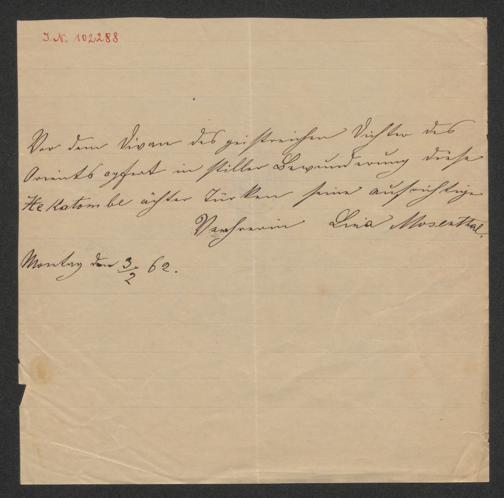 I.N. 102288
Vor dem Divan des geistreichen Dichter des
Orients opfert in stiller Bewunderung diese
Hekatombe ächter Türken seine aufrichtige
Verehrerin Lina Mosenthal.
Montag den 3/2 62.